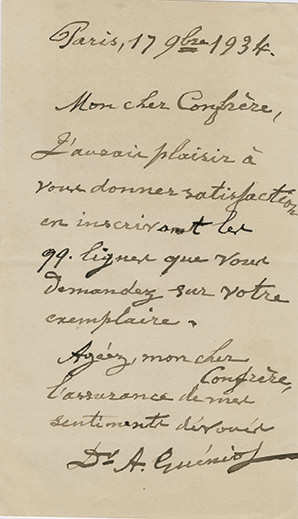 Paris, 17 9bre 1934.
Mon cher Confrère,
J'aurai plaisir à
vous donner satisfaction
en inscrivant les
99. lignes que vous
demandez sur votre
exemplaire.
Agréez, mon cher
Confrère,
l'assurance de mes
sentiments dévoués
Dr A. Guéniot